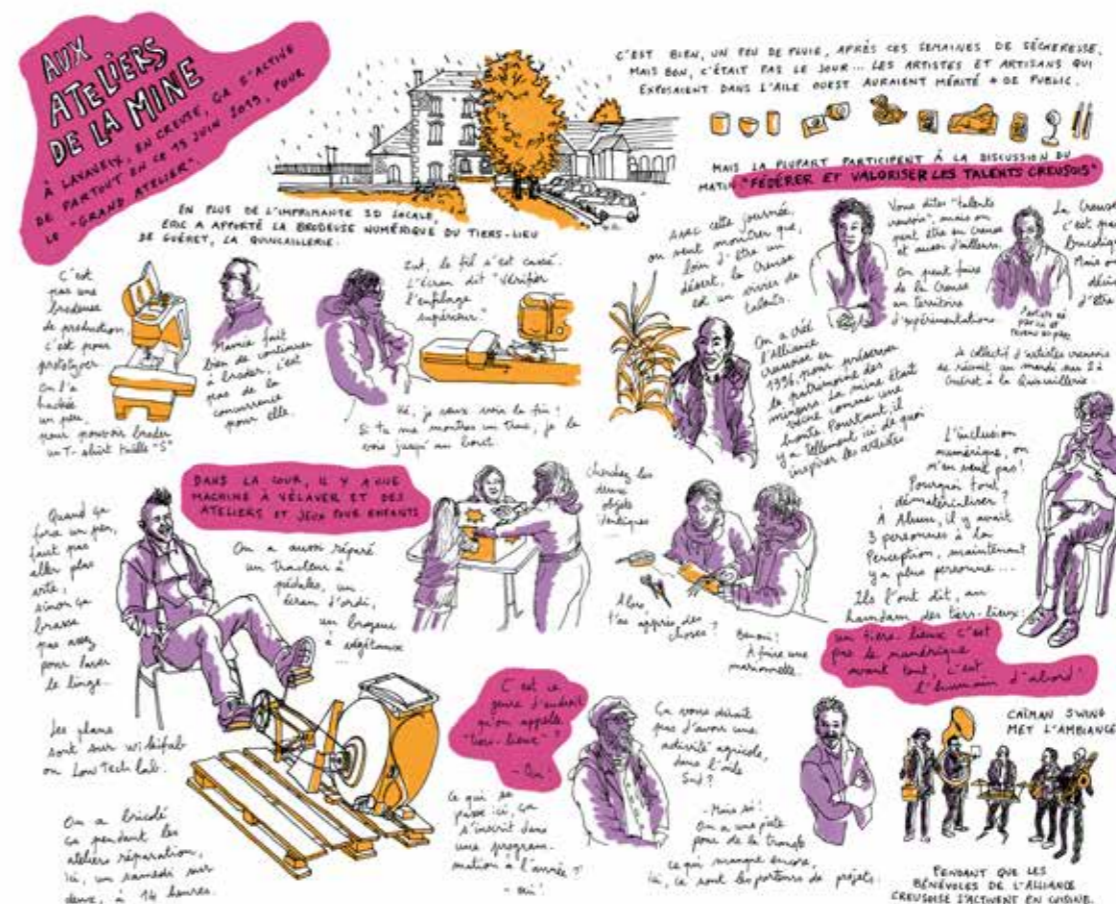 AUX
ATELIERS
DE LA MINE
À LAVAVEIX, EN CREUSE, ÇA S'ACTIVE
DE PARTOUT EN CE 15 JUIN 2019, POUR
LE "GRAND ATELIER".
C'EST BIEN, UN PEU DE PLUIE, APRÈS CES SEMAINES DE SÉCHERESSE,
MAIS BON, C'ÉTAIT PAS LE JOUR... LES ARTISTES ET ARTISANS QUI
EXPOSAIENT DANS L'AILE OUEST AURAIENT MÉRITÉ + DE PUBLIC.
MAIS LA PLUPART PARTICIPENT À LA DISCUSSION DU
MATIN "FÉDÉRER ET VALORISER LES TALENTS CREUSOIS"
EN PLUS DE L'IMPRIMANTE 3D LOCALE,
ERIC A APPORTÉ LA BRODEUSE NUMÉRIQUE DU TIERS-LIEU
DE GUÉRET, LA QUINCAILLERIE.
C'est
pas une
brodeuse
de production,
c'est pour
prototyper
On l'a
hackée
un peu,
pour pouvoir broder
un T-shirt taille "S"
Mamie fait
bien de continuer
à broder, c'est
pas de la
concurrence
pour elle.
Zut, le fil s'est cassé.
L'écran dit "Vérifier
l'enfilage
supérieur"
Hé, je veux voir la fin !
Si tu me montres un truc, je le
vois jusqu'au bout.
Avec cette journée,
on veut montrer que,
loin d'être un
désert, la Creuse
est un vivier de
talents.
Vous dites "talents
creusois", mais on
peut être en Creuse
et aussi d'ailleurs.
On peut faire
de la Creuse
un territoire
d'expérimentations
La Creuse
c'est pas
bucolique
Mais on
d'être
Artiste né
par ici et
revenu au pays
On a créé
l'Alliance
creusoise en
1996, pour préserver
le patrimoine des
mineurs. La mine était
vécue comme une
honte. Pourtant, il
y a tellement ici de quoi
inspirer les artistes.
Le collectif d'artistes creusois
se réunit un mardi sur 2 à
Guéret à la Quincaillerie.
L'inclusion
numérique, on
m'en veut pas !
Pourquoi tout
dématérialiser ?
À Ahun, il y avait
3 personnes à la
Perception, maintenant
y a plus personne...
Ils l'ont dit, au
des tiers-lieux :
un tiers-lieux c'est
pas le numérique
avant tout, c'est
l'humain d'abord !
DANS LA COUR, IL Y A UNE
MACHINE À VÉLAVER ET DES
ATELIERS ET JEUX POUR ENFANTS
Quand ça
force un peu,
faut pas
aller plus
vite,
sinon ça
brasse
pas assez
pour laver
le linge.
On a aussi réparé
un tracteur à
pédales, un
écran d'ordi,
un broyeur
à végétaux
...
Cherchez les
deux
objets
identiques
Alors
t'as appris des
choses ?
Ben oui !
À faire une
marionnette.
Les plans
sont sur wikifab
ou LowTech lab.
On a bricolé
ça pendant les
ateliers réparation,
ici, un samedi sur
deux, à 14 heures.
C'est ce
genre d'endroit
qu'on appelle
"tiers-lieux" ?
- Oui !
Ce qui se
passe ici, ça
s'inscrit dans
une program-
mation à l'année ?
- oui !
Ça vous dirait
pas d'avoir une
activité agricole,
dans l'aile
Sud ?
- Mais si !
On a une piste
pour de la
ce qui manque encore,
ici, ce sont les porteurs de projets.
CAÏMAN SWING
MET L'AMBIANCE
PENDANT QUE LES
BÉNÉVOLES DE L'ALLIANCE
CREUSOISE S'ACTIVENT EN CUISINE.